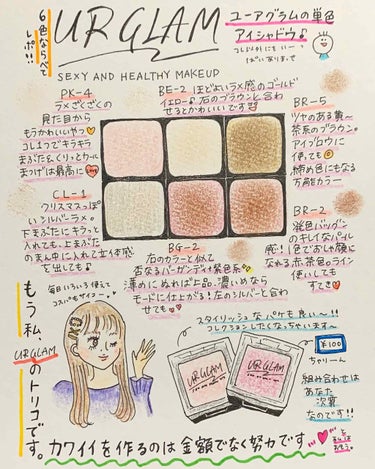 6色ならべて
レポ!!
URGLAM
SEXY AND HEALTHY MAKEUP
ユーアグラムの単色
アイシャドウ♪
PK-4
ラメざくざくの
見た目から
もうかわいいやつ
コレ1つでキラキラ
まぶたもぷっくり
まつげは最高に
BE-2 ほどよいラメ感のゴールド
イエロー♪右のブラウンと合わ
せるとかわいいです
BR-5
ツヤのある黄〜
茶系のブラウン。
アイブロウに
使っても
締め色にもなる
万能カラー
CL-1
クリスマスっぽ
いシルバーラメ。
下まぶたにキラッと
入れても、上まぶた
のまん中に入れて立体感
を出しても♪
BG-2
右のカラーと似て
否なるバーガンディ紫色系
薄めにぬれば上品、濃いめなら
モードに仕上がる!左のシルバーと合わ
せても
BR-2
発色バツグン
のキレイなパール
感!1色でおしゃれ顔に
なれる赤茶色。ライン
使いしても
すてき
毎日いろいろ使えて
コスパもサイコー。
もう私、
URGLAM
のトリコです。
スタイリッシュなパケも良い〜!!
コレクションしたくなっちゃいます〜
URGLAM
URGLAM
¥100
ちゃりーん
組み合わせは
あなた
次第
なのです!!
カワイイを作るのは金額でなく努力です